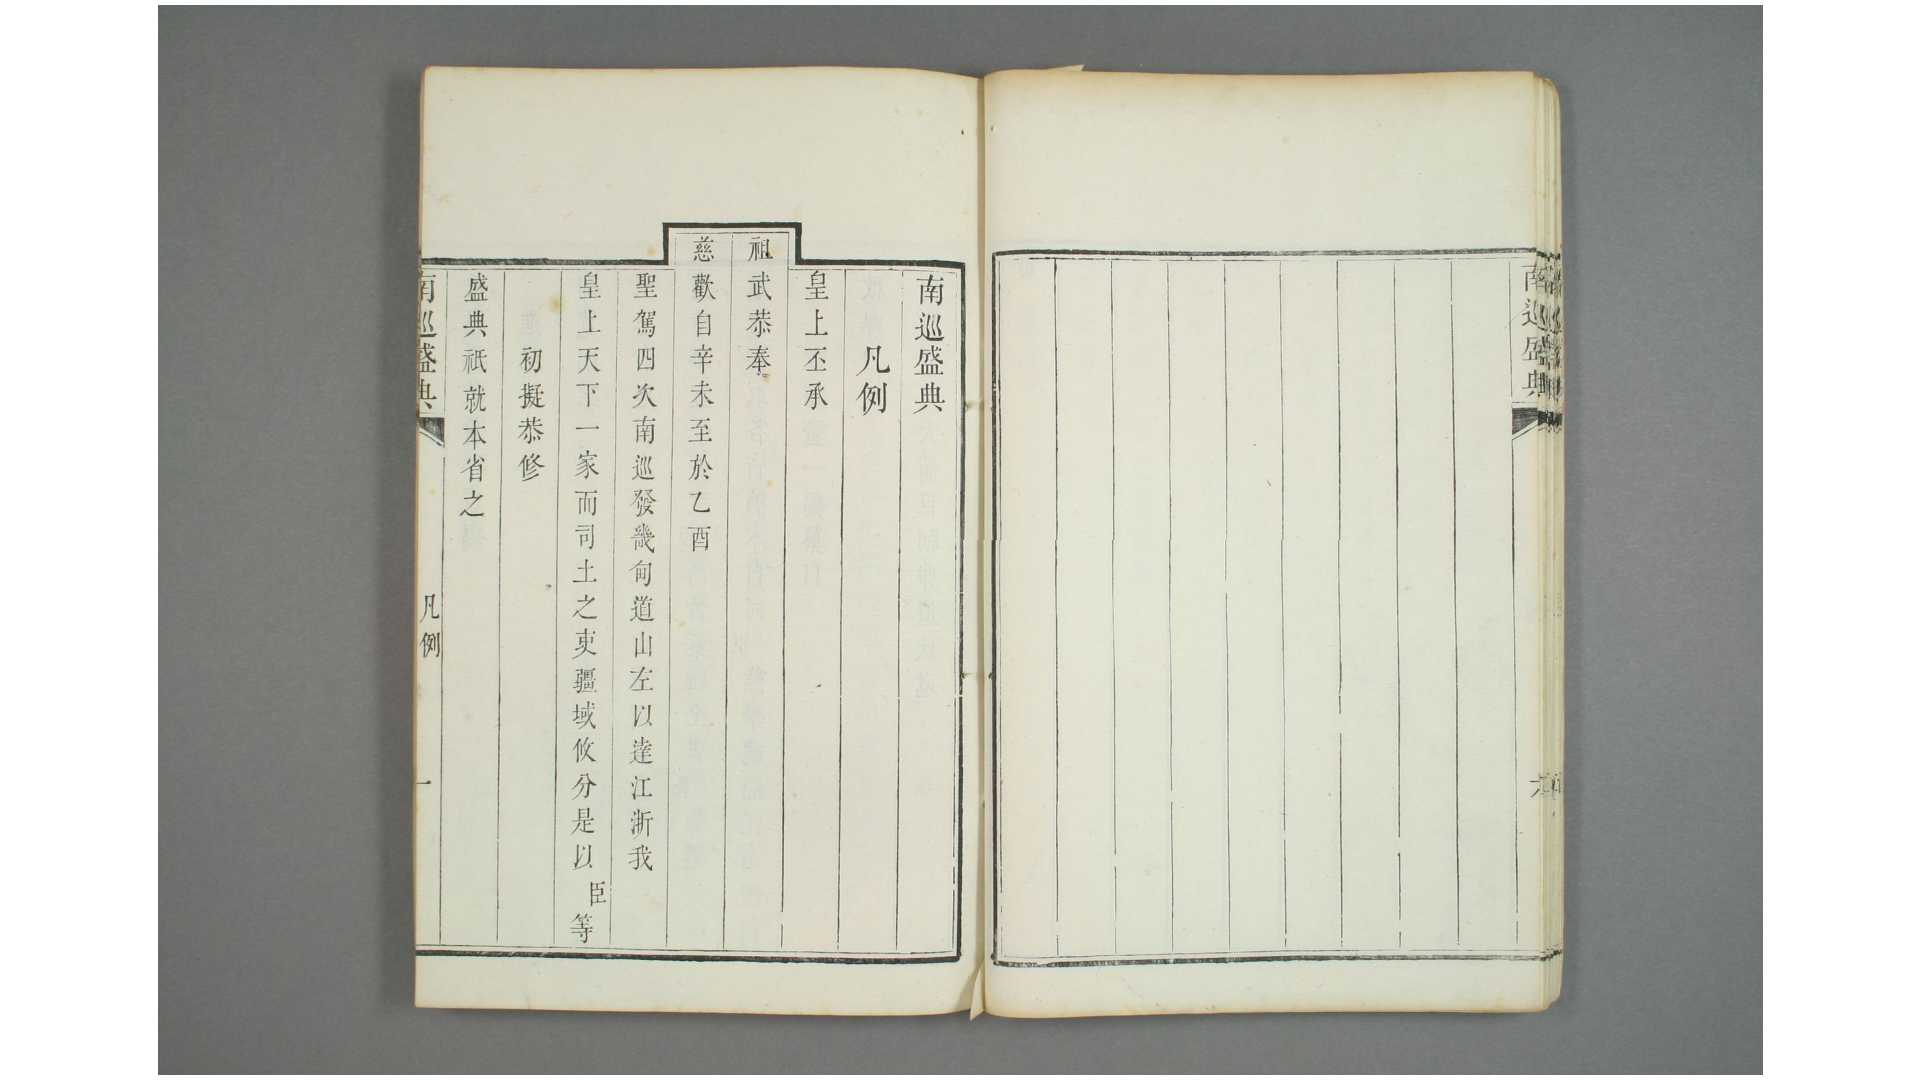 南巡盛典
六
南巡盛典
凡例
皇上丕承
祖武恭奉
慈歡自辛未至於乙酉
聖駕四次南巡發畿甸道山左以達江浙我
皇上天下一家而司土之吏疆域攸分是以臣等
初擬恭修
盛典祇就本省之
南巡盛典
凡例
一